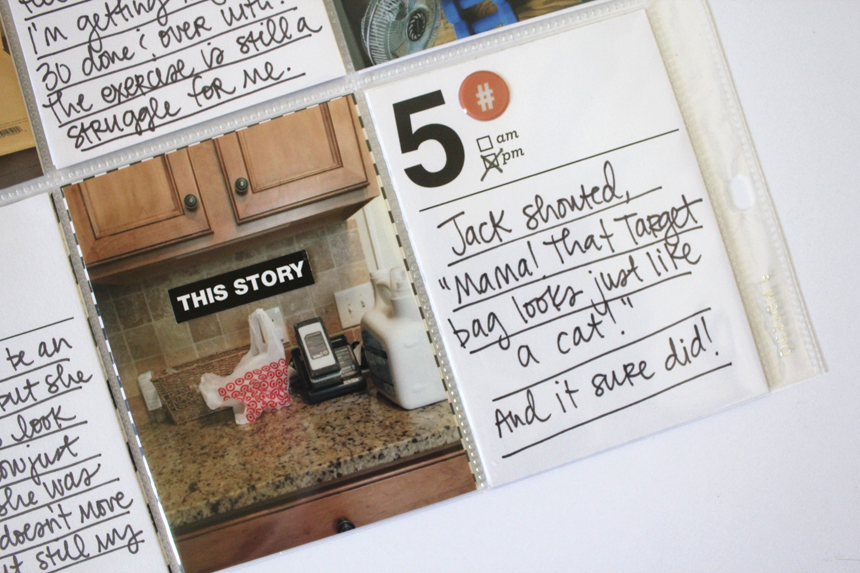 i'm getting
30 done & over with!
The exercise is still a
struggle for me.
5 #
am
pm
Jack shouted,
"Mama! That Target
bag looks just like
a cat!"
And it sure did!
THIS STORY
be an
but she
look
just
she was
doesn't move
it still my